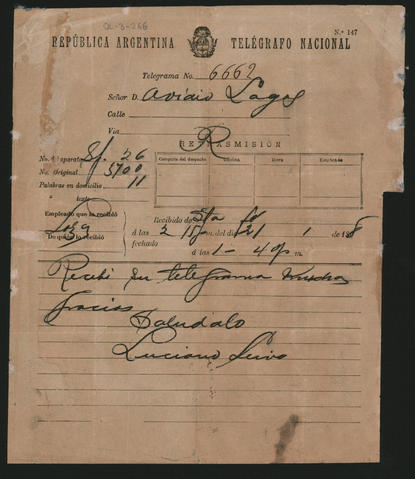 OL-3-266
Nº 147
REPÚBLICA ARGENTINA TELÉGRAFO NACIONAL
Telegrama No. 6662
Señor D. Ovidio Lagos
Calle
Vía
R
RETRASMISIÓN
No. Aparato Sf. 26
No. Original 5700
Palabras en domicilio 11
texto
Compañía del despacho Oficina Hora Empleado
Empleado que lo recibió
De quién lo recibió
Recibido de Sta Fe
á las 2 15 m. del día 21 1 de 188
fechado á las 1-40 p m.
Recibí su telegrama muchas
gracias
Saludalo
Luciano Leiva